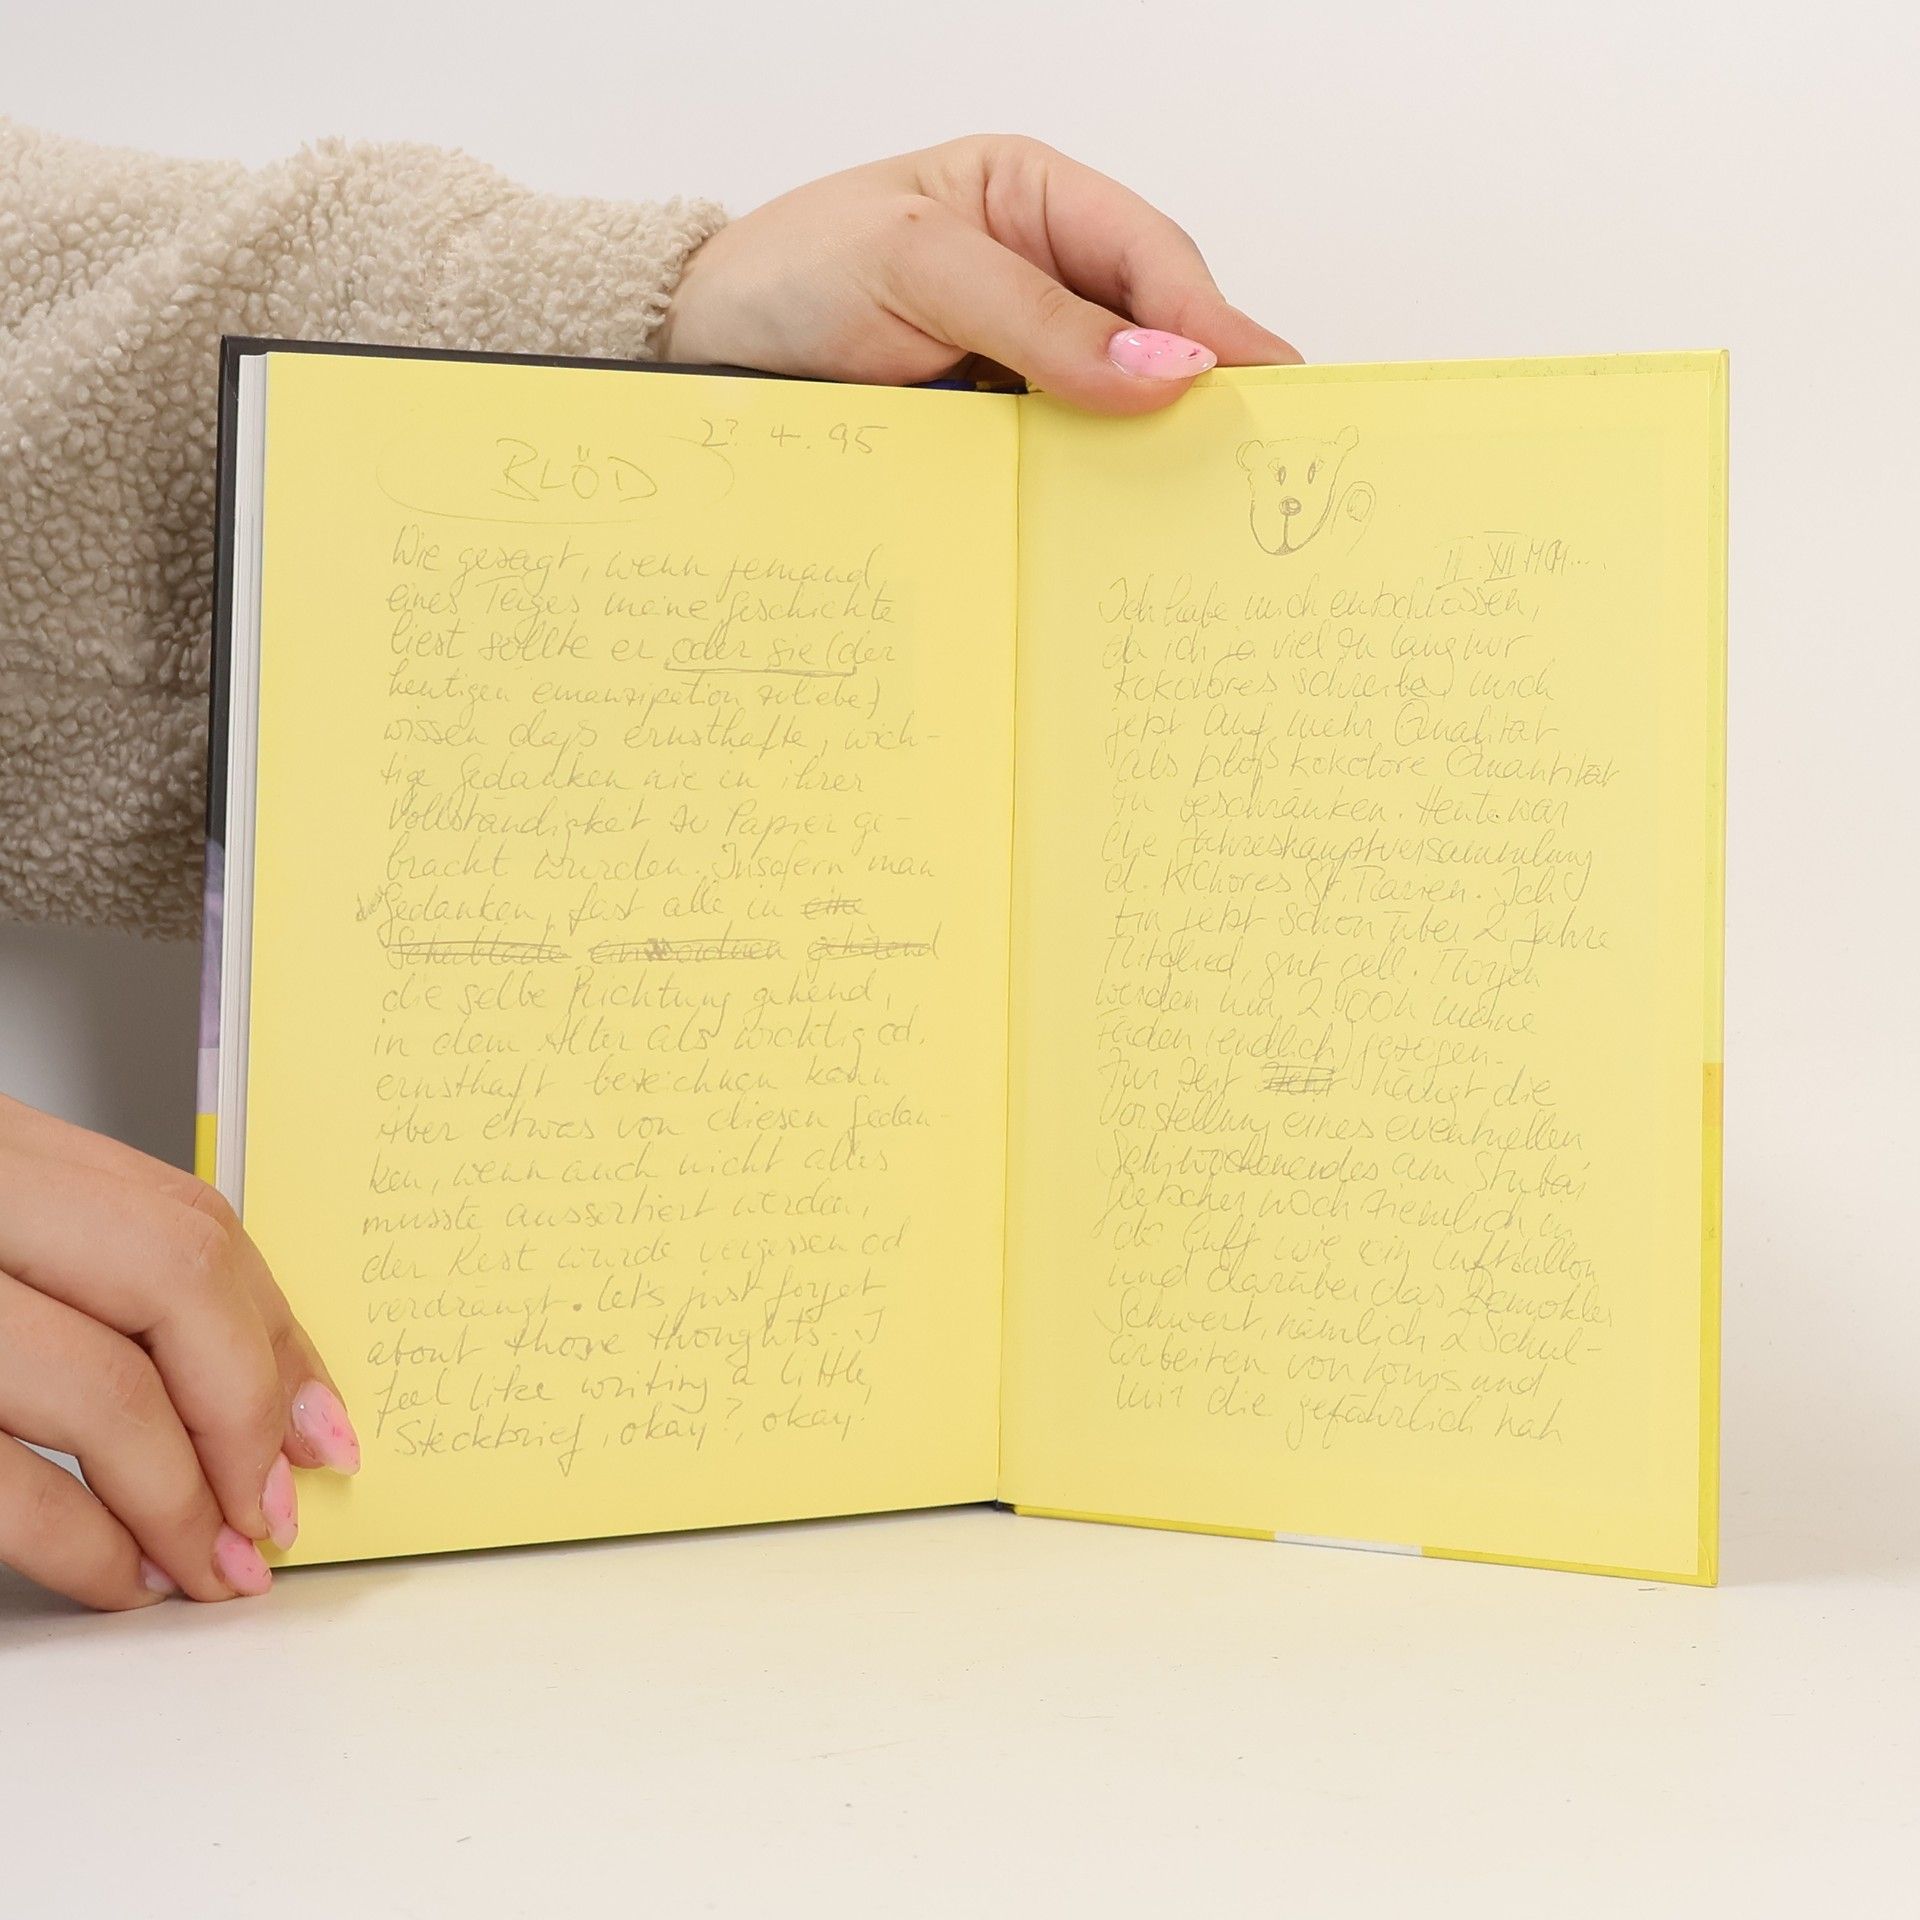 2? 4. 95
BLÖD
Wie gesagt, wenn jemand
eines Teiges meine Geschichte
liest sollte er oder sie (der
heutigen emanzipation zuliebe)
wissen daß ernsthafte, wich-
tige Gedanken nie in ihrer
Vollständigkeit zu Papier ge-
bracht wurden. Insofern man
diese Gedanken, fast alle in eine
Schublade einzuordnen gehörend
die selbe Richtung gehend,
in dem Alter als wichtig od.
ernsthaft bezeichnen kann
Aber etwas von diesen Gedan-
ken, wenn auch nicht alles
musste aussortiert werden,
der Rest wurde vergessen od
verdrängt. Let's just forget
about those thoughts. I
feel like writing a little,
Steckbrief, okay?, okay.
II. XII. MCM....
Ich habe mich entschlossen,
da ich ja viel zu lang nur
kokolores schreibe, mich
jetzt auf mehr Qualität
als bloß kokolore Quantität
zu beschränken. Heute war
die Jahreshauptversammlung
d. KChores St. Marien. Ich
bin jetzt schon über 2 Jahre
Mitglied, gut gell. Morgen
werden um 2.00h meine
Fäden (endlich) gezogen.
Zur Zeit hängt die
Vorstellung eines eventuellen
Schiwochenendes am Stubai
Gletscher noch ziemlich in
de Luft wie ein Luftballon
und darüber das Damokles
Schwert, nämlich 2 Schul-
arbeiten von und
mir die gefährlich nah